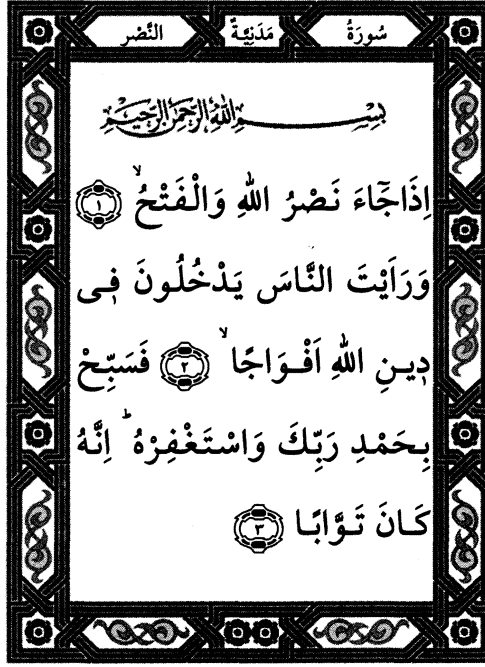 سُورَةُ مَدَنِيَّةٌ النَّصْر
بِسْمِ اللهِ الرَّحْمٰنِ الرَّحِيمِ
اِذَا جَٓاءَ نَصْرُ اللهِ وَالْفَتْحُۙ ﴿١﴾
وَرَاَيْتَ النَّاسَ يَدْخُلُونَ فٖى
دٖينِ اللهِ اَفْوَاجًاۙ ﴿٢﴾ فَسَبِّحْ
بِحَمْدِ رَبِّكَ وَاسْتَغْفِرْهُؕ اِنَّهُ
كَانَ تَوَّابًا ﴿٣﴾